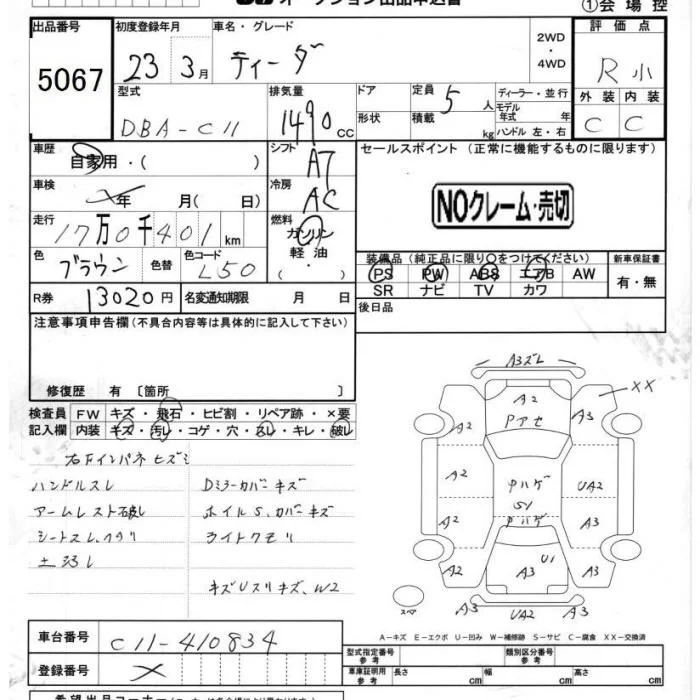 オークション出品申込書
①会場控
出品番号 初度登録年月 車名・グレード 評価点
5067 23 3月 ティーダ 2WD・4WD R小
型式 排気量 ドア 定員 ディーラー・並行 外装 内装
DBA-C11 1490cc 5人 モデル年式 年
形状 積載 kg ハンドル左・右 C C
車歴 自家用・( ) シフト AT セールスポイント(正常に機能するものに限ります)
車検 年 月( 日) 冷房 AC
NOクレーム・売切
走行 17万0千401km 燃料 ガソリン・軽油・( )
色 ブラウン 色替 色コード L50
装備品(純正品に限り○をつけてください) 新車保証書
PS PW ABS エアB AW 有・無
SR ナビ TV カワ
R券 13020円 名変通知期限 月 日
後日品
注意事項申告欄(不具合内容等は具体的に記入して下さい)
修復歴 有〔箇所 〕
検査員 FW キズ・飛石・ヒビ割・リペア跡・×要
記入欄 内装 キズ・汚レ・コゲ・穴・スレ・キレ・破レ
右下インパネヒズミ
ハンドルスレ Dミラーカバーキズ
アームレスト破レ ホイルS、カバーキズ
ライトクモリ
キズUスリキズ、W2
A3ズレ
XX
A2
Pアセ
A2 A3
A2 ナハゲ UA2
S1
A2 A3
U1
A2 A3 A3
スペア
A3 UA2 A3
A-キズ E-エクボ U-凹み W-補修跡 S-サビ C-腐食 XX-交換済
車台番号 C11-410834
登録番号
型式指定番号 参考 類別区分番号 参考
車庫証明用 参考 長さ cm 幅 cm 高さ cm
希望出品コーナー